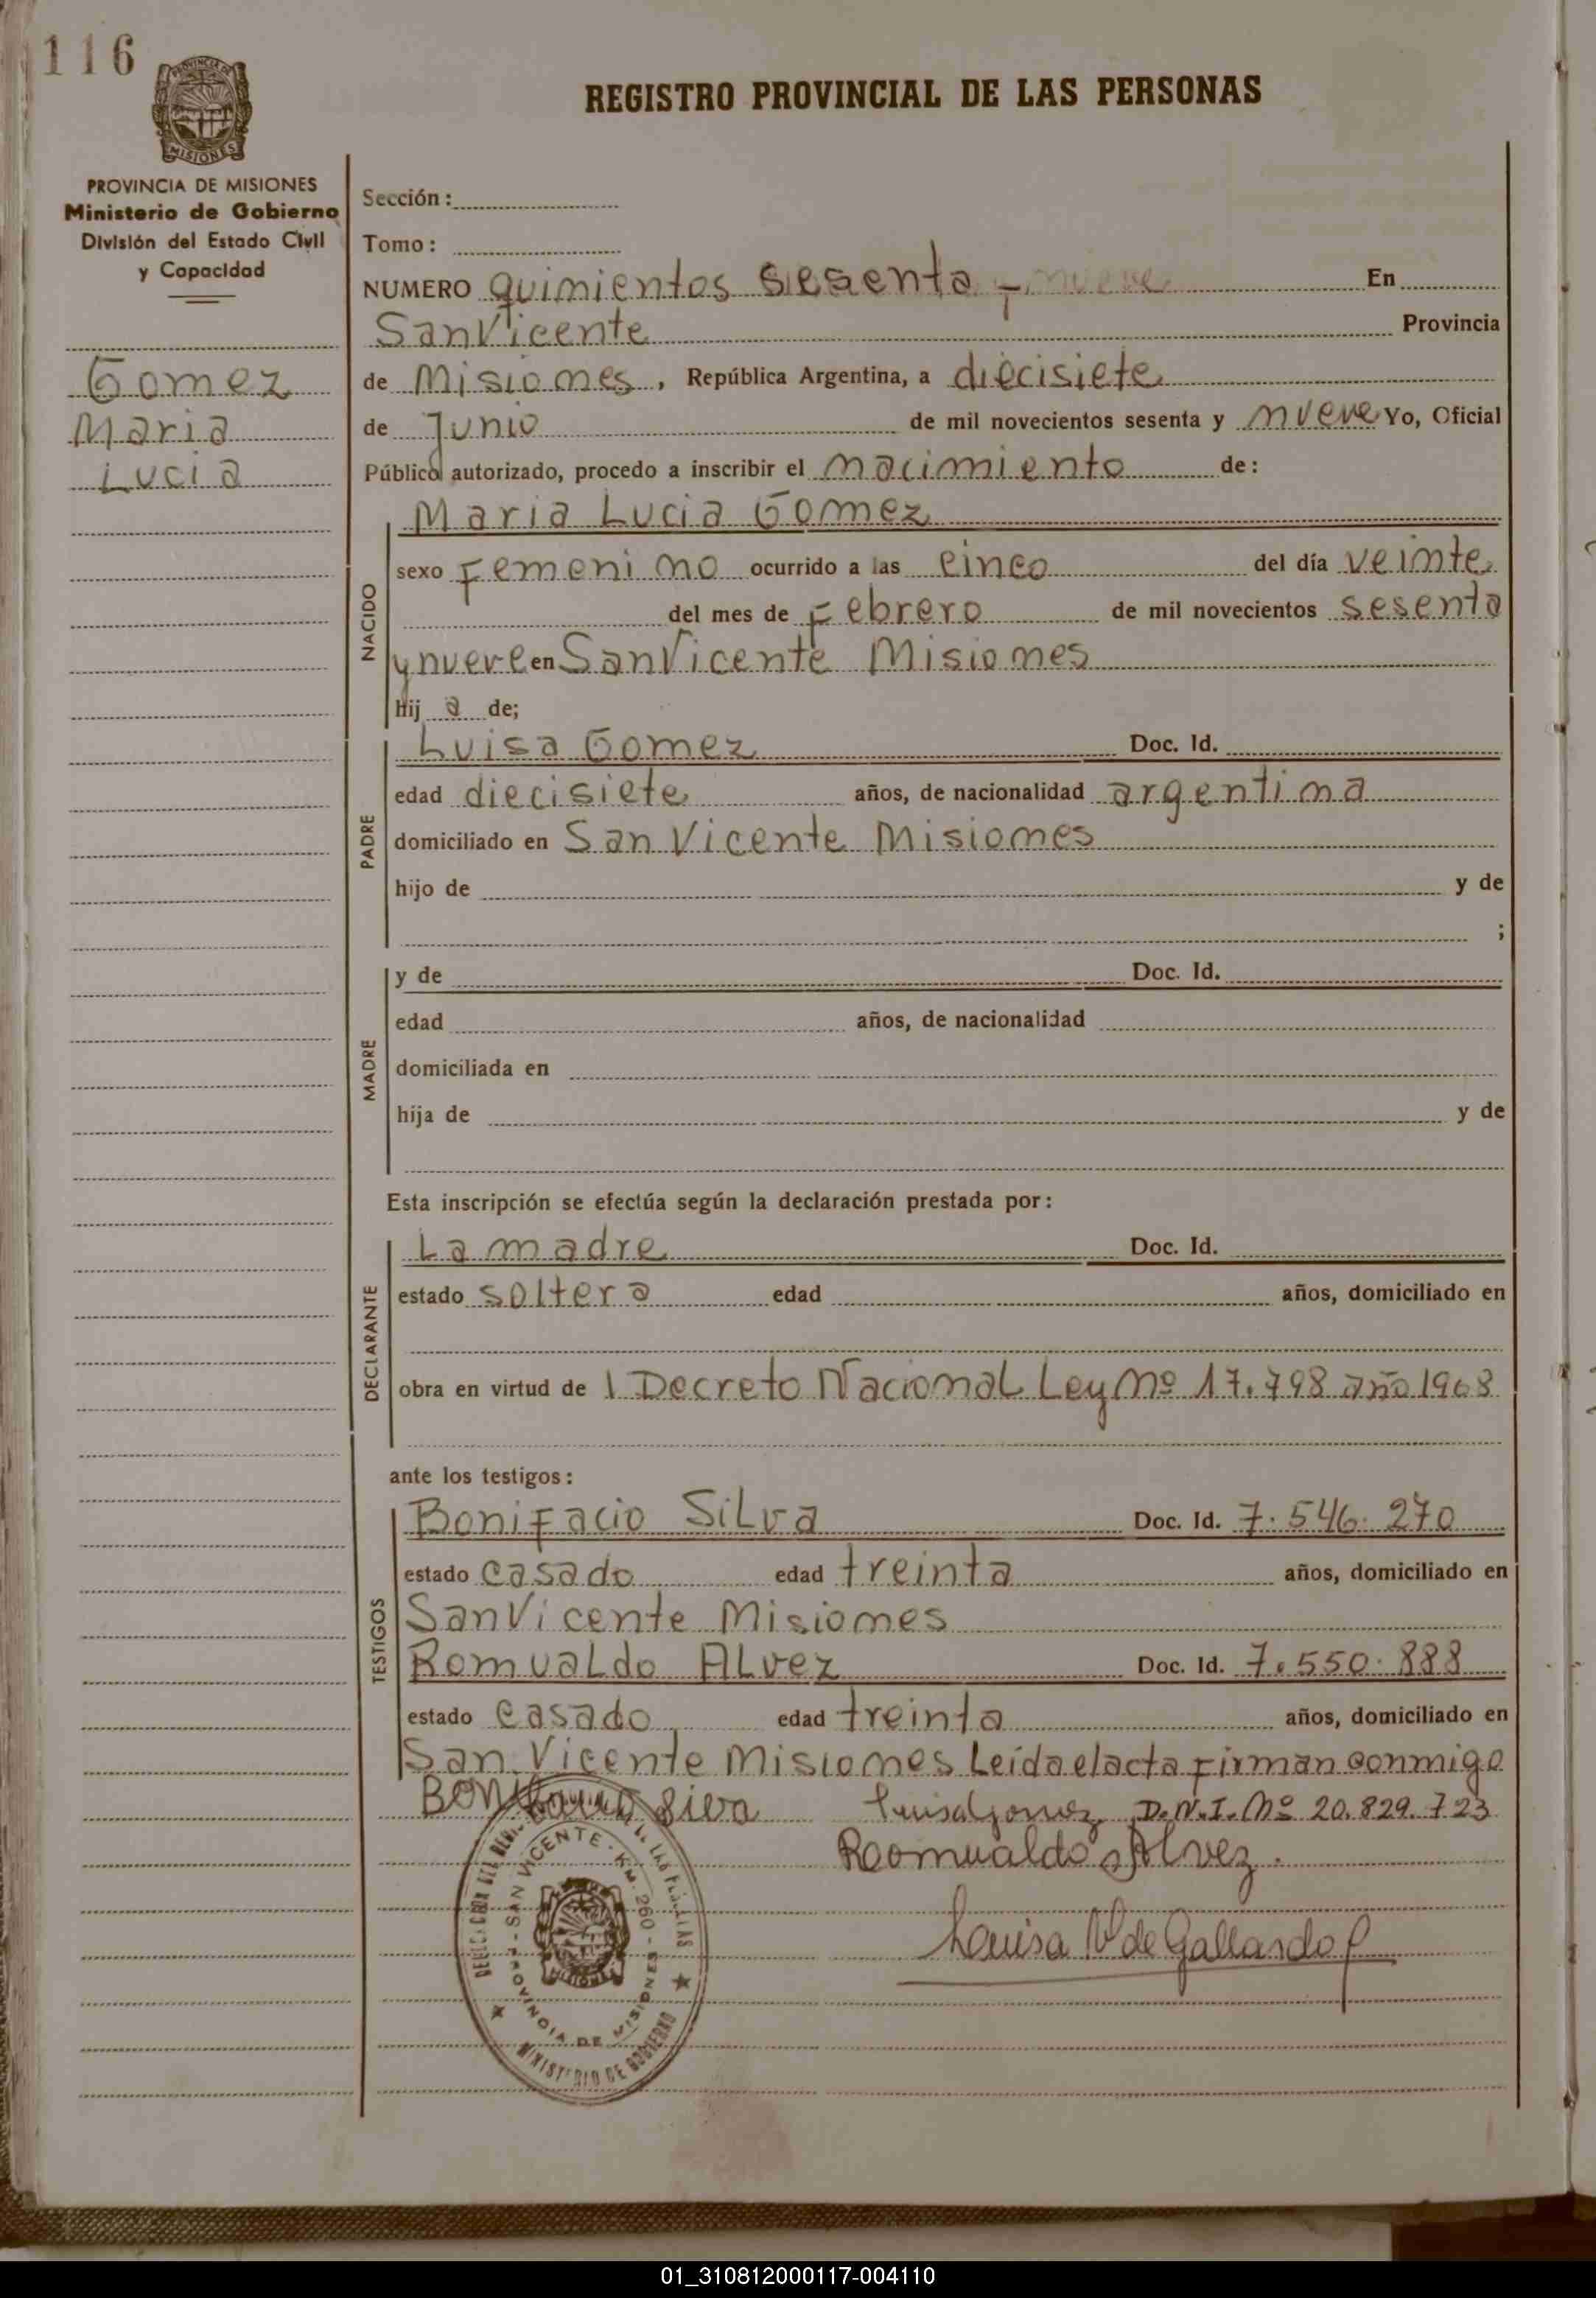 116
PROVINCIA DE
MISIONES
REGISTRO PROVINCIAL DE LAS PERSONAS
PROVINCIA DE MISIONES
Ministerio de Gobierno
División del Estado Civil
y Capacidad
Gomez
Maria
Lucia
Sección:
Tomo:
NUMERO quimientos sesenta y nueve En
San Vicente Provincia
de Misiomes, República Argentina, a diecisiete
de Junio de mil novecientos sesenta y nueve Yo, Oficial
Público autorizado, procedo a inscribir el nacimiento de:
NACIDO
Maria Lucia Gomez
sexo Femenimo ocurrido a las cinco del día veimte
del mes de Febrero de mil novecientos sesenta
y nueve en San Vicente Misiomes
Hij a de;
PADRE
Luisa Gomez Doc. Id.
edad diecisiete años, de nacionalidad argentima
domiciliado en San Vicente Misiomes
hijo de y de
;
MADRE
y de Doc. Id.
edad años, de nacionalidad
domiciliada en
hija de y de
Esta inscripción se efectúa según la declaración prestada por:
DECLARANTE
La madre Doc. Id.
estado soltera edad años, domiciliado en
obra en virtud de l Decreto Nacional Ley Nº 17.798 año 1968
ante los testigos:
TESTIGOS
Bonifacio Silva Doc. Id. 7.546.270
estado casado edad treinta años, domiciliado en
San Vicente Misiomes
Romualdo Alvez Doc. Id. 7.550.888
estado casado edad treinta años, domiciliado en
San Vicente Misiomes Leída el acta firman conmigo
Silva Luisa Gomez D.N.I. Nº 20.829.723
Roomualdo Alvez.
Louisa V de Gallardo
SAN VICENTE - KM. 260 -
PROVINCIA DE MISIONES
MINISTERIO DE GOBIERNO
01_310812000117-004110